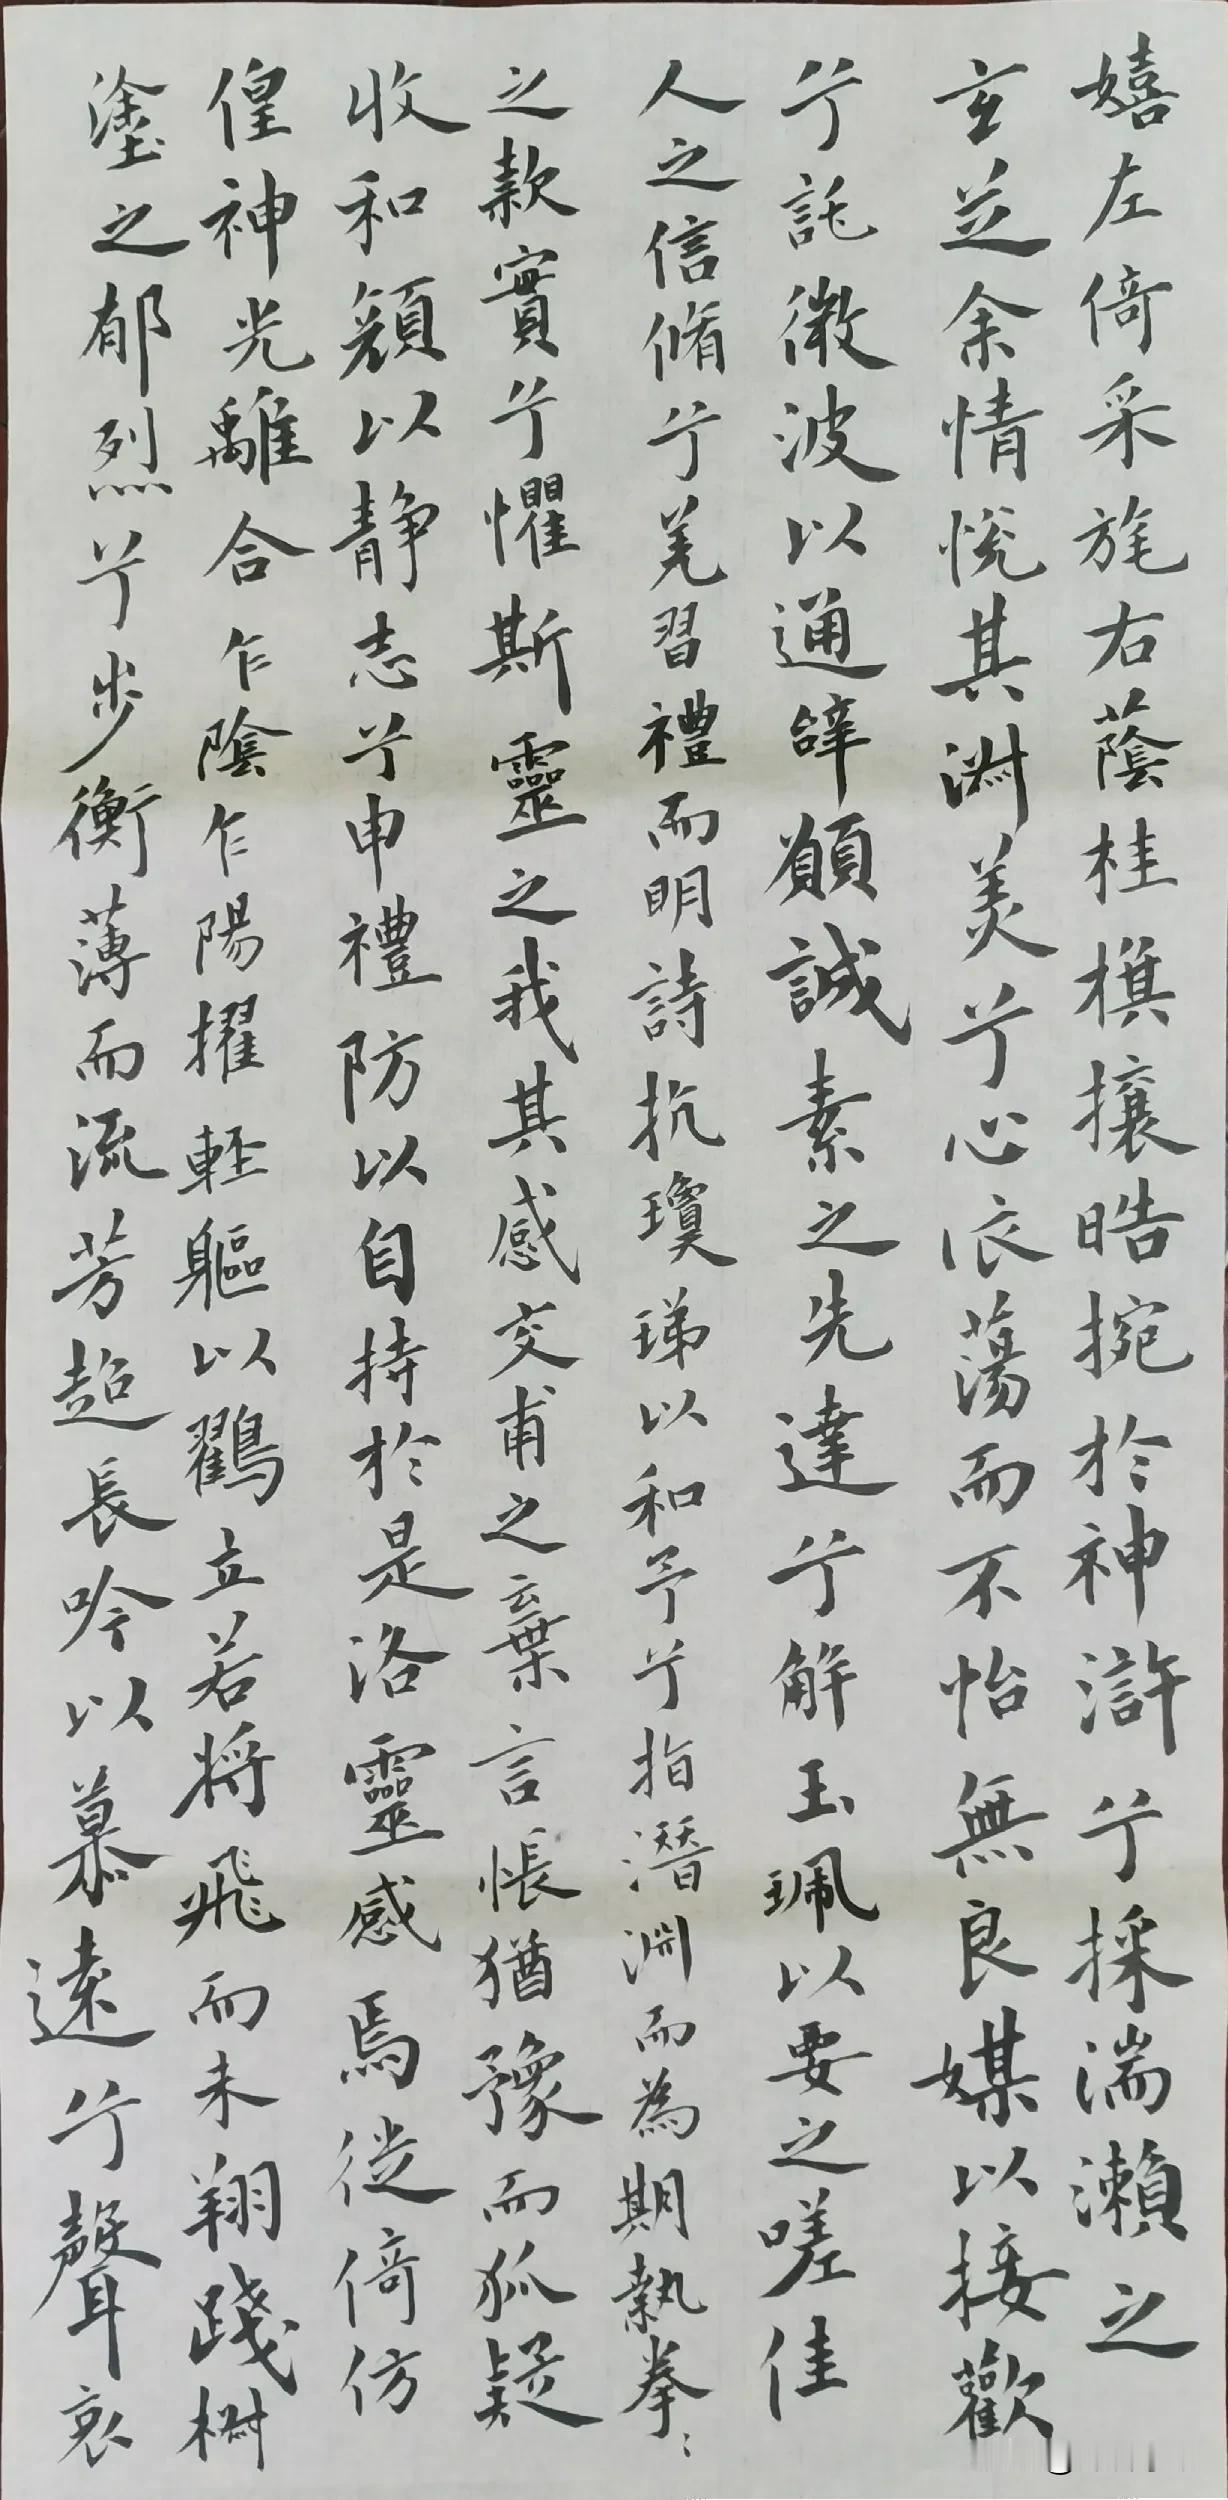 嬉左倚采旄右蔭桂檱攘皓捥於神滸兮採湍瀨之
玄芝余情悅其淑美兮心依蕩而不怡無良媒以接歡
兮託微波以通辭願誠素之先達兮解玉珮以要之嗟佳
人之信脩兮羌習禮而明詩抗瓊珶以和予兮指潛淵而為期執拳〻
之款實兮懼斯靈之我其感交甫之棄言悵猶豫而狐疑
收和顏以靜志兮申禮防以自持於是洛靈感焉徙倚仿
偟神光離合乍陰乍陽擢輕軀以鶴立若將飛而未翔踐椒
塗之郁烈兮步衡薄而流芳超長吟以慕遠兮聲哀